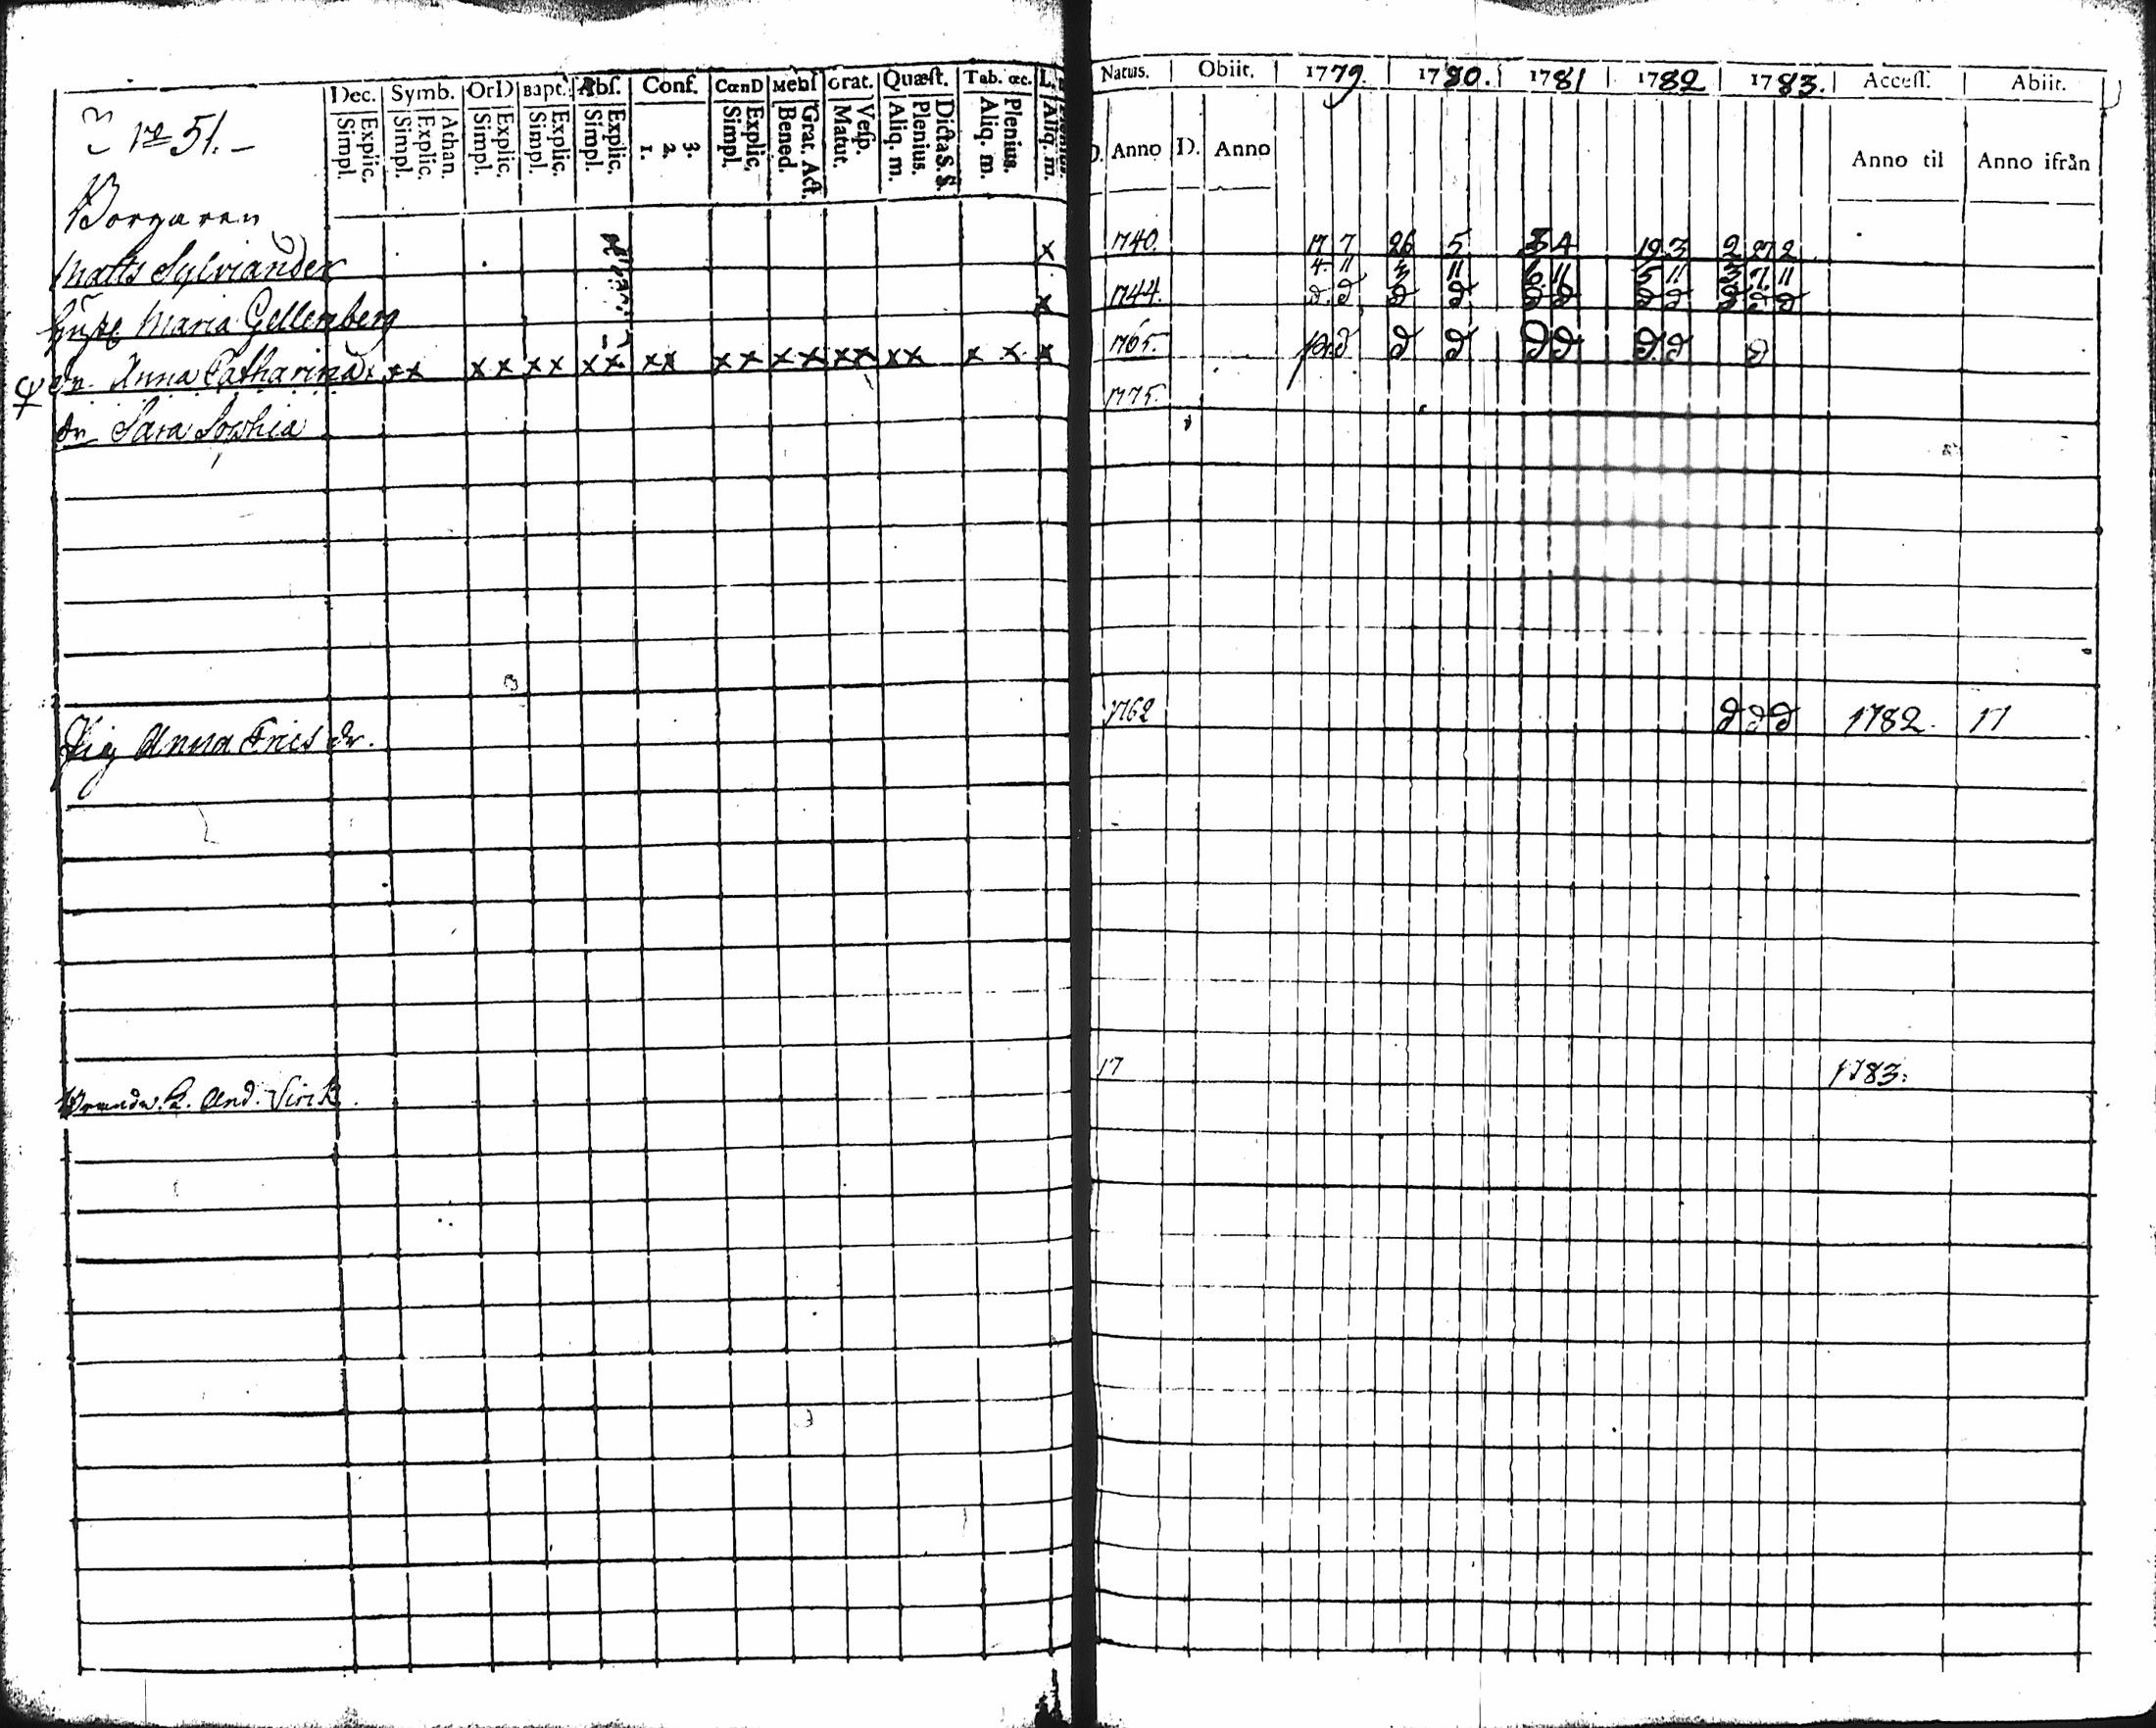 Dec. Symb. OrD Bapt. Abſ. Conf. CœnD Menſ Grat. Quæſt. Tab. œc.
Simpl. Explic. Simpl. Explic. Athan. Simpl. Explic. Simpl. Explic. Simpl. Explic. 1. 2. 3. Simpl. Explic. Bened. Grat. Act. Matut. Veſp. Aliq. m. Plenius. Dicta S. S. Aliq. m. Plenius. Aliq. m.
No 51.
Borgaren
Matts Sylviander x
Hust. Maria Gellenberg x
dr. Anna Catharina x xx xx xx xx xx xx xx xx xx x x x
dr Sara Sophia
Pig Anna Erics dr.
And. Sirck
Natus. Obiit. 1779. 1780. 1781 1782 1783. Acceſſ. Abiit.
D. Anno D. Anno Anno til Anno ifrån
1740. 17 7 26 5 3 4 19 3 2 27 2
4. 11 3 11 6 11 5 11 3 7 11
1744. d. d d d d d d d d d d
1765. d d d d d d d d
1775.
1762 d d d 1782. 17
17 1783.